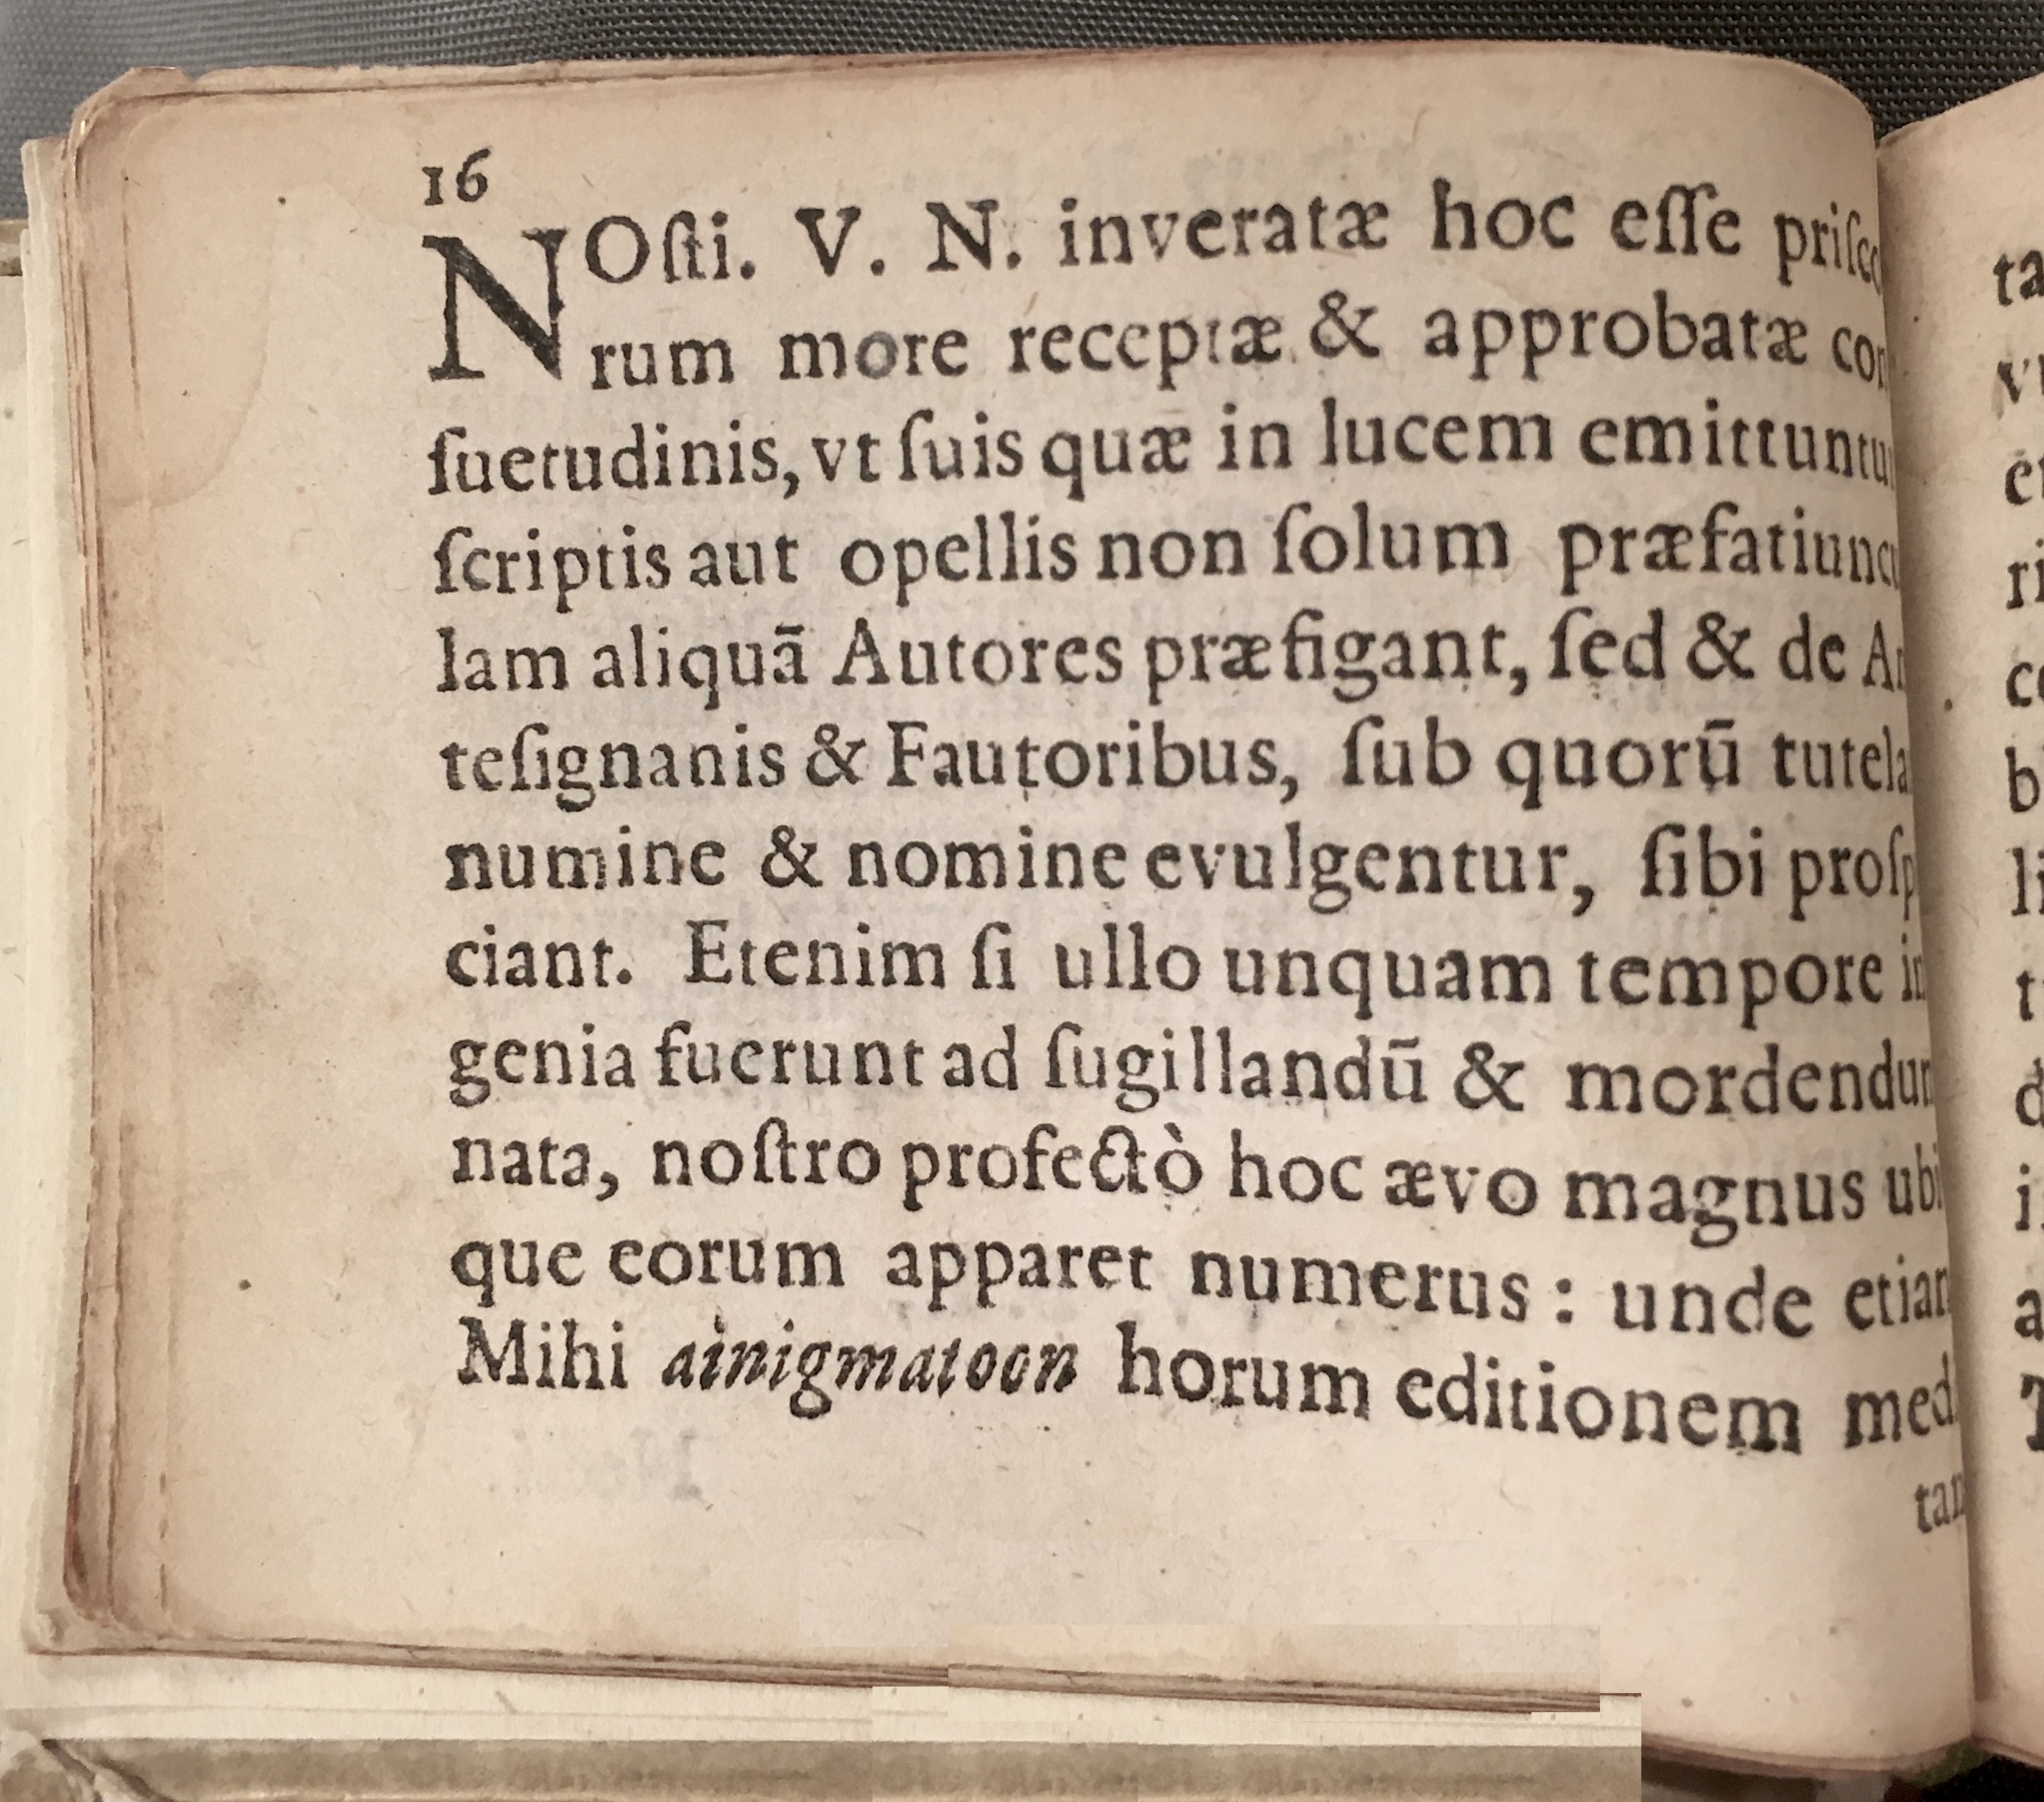 16
NOſti. V. N. inveratæ hoc eſſe priſco
rum more receptæ & approbatæ con
ſuetudinis, vt ſuis quæ in lucem emittuntur
ſcriptis aut opellis non ſolum præfatiuncu
lam aliquā Autores præfigant, ſed & de An
teſignanis & Fautoribus, ſub quorū tutela
numine & nomine evulgentur, ſibi proſp
ciant. Etenim ſi ullo unquam tempore in
genia fuerunt ad ſugillandū & mordendum
nata, noſtro profectò hoc ævo magnus ubi
que eorum apparet numerus : unde etiam
Mihi ainigmatoon horum editionem med
tan